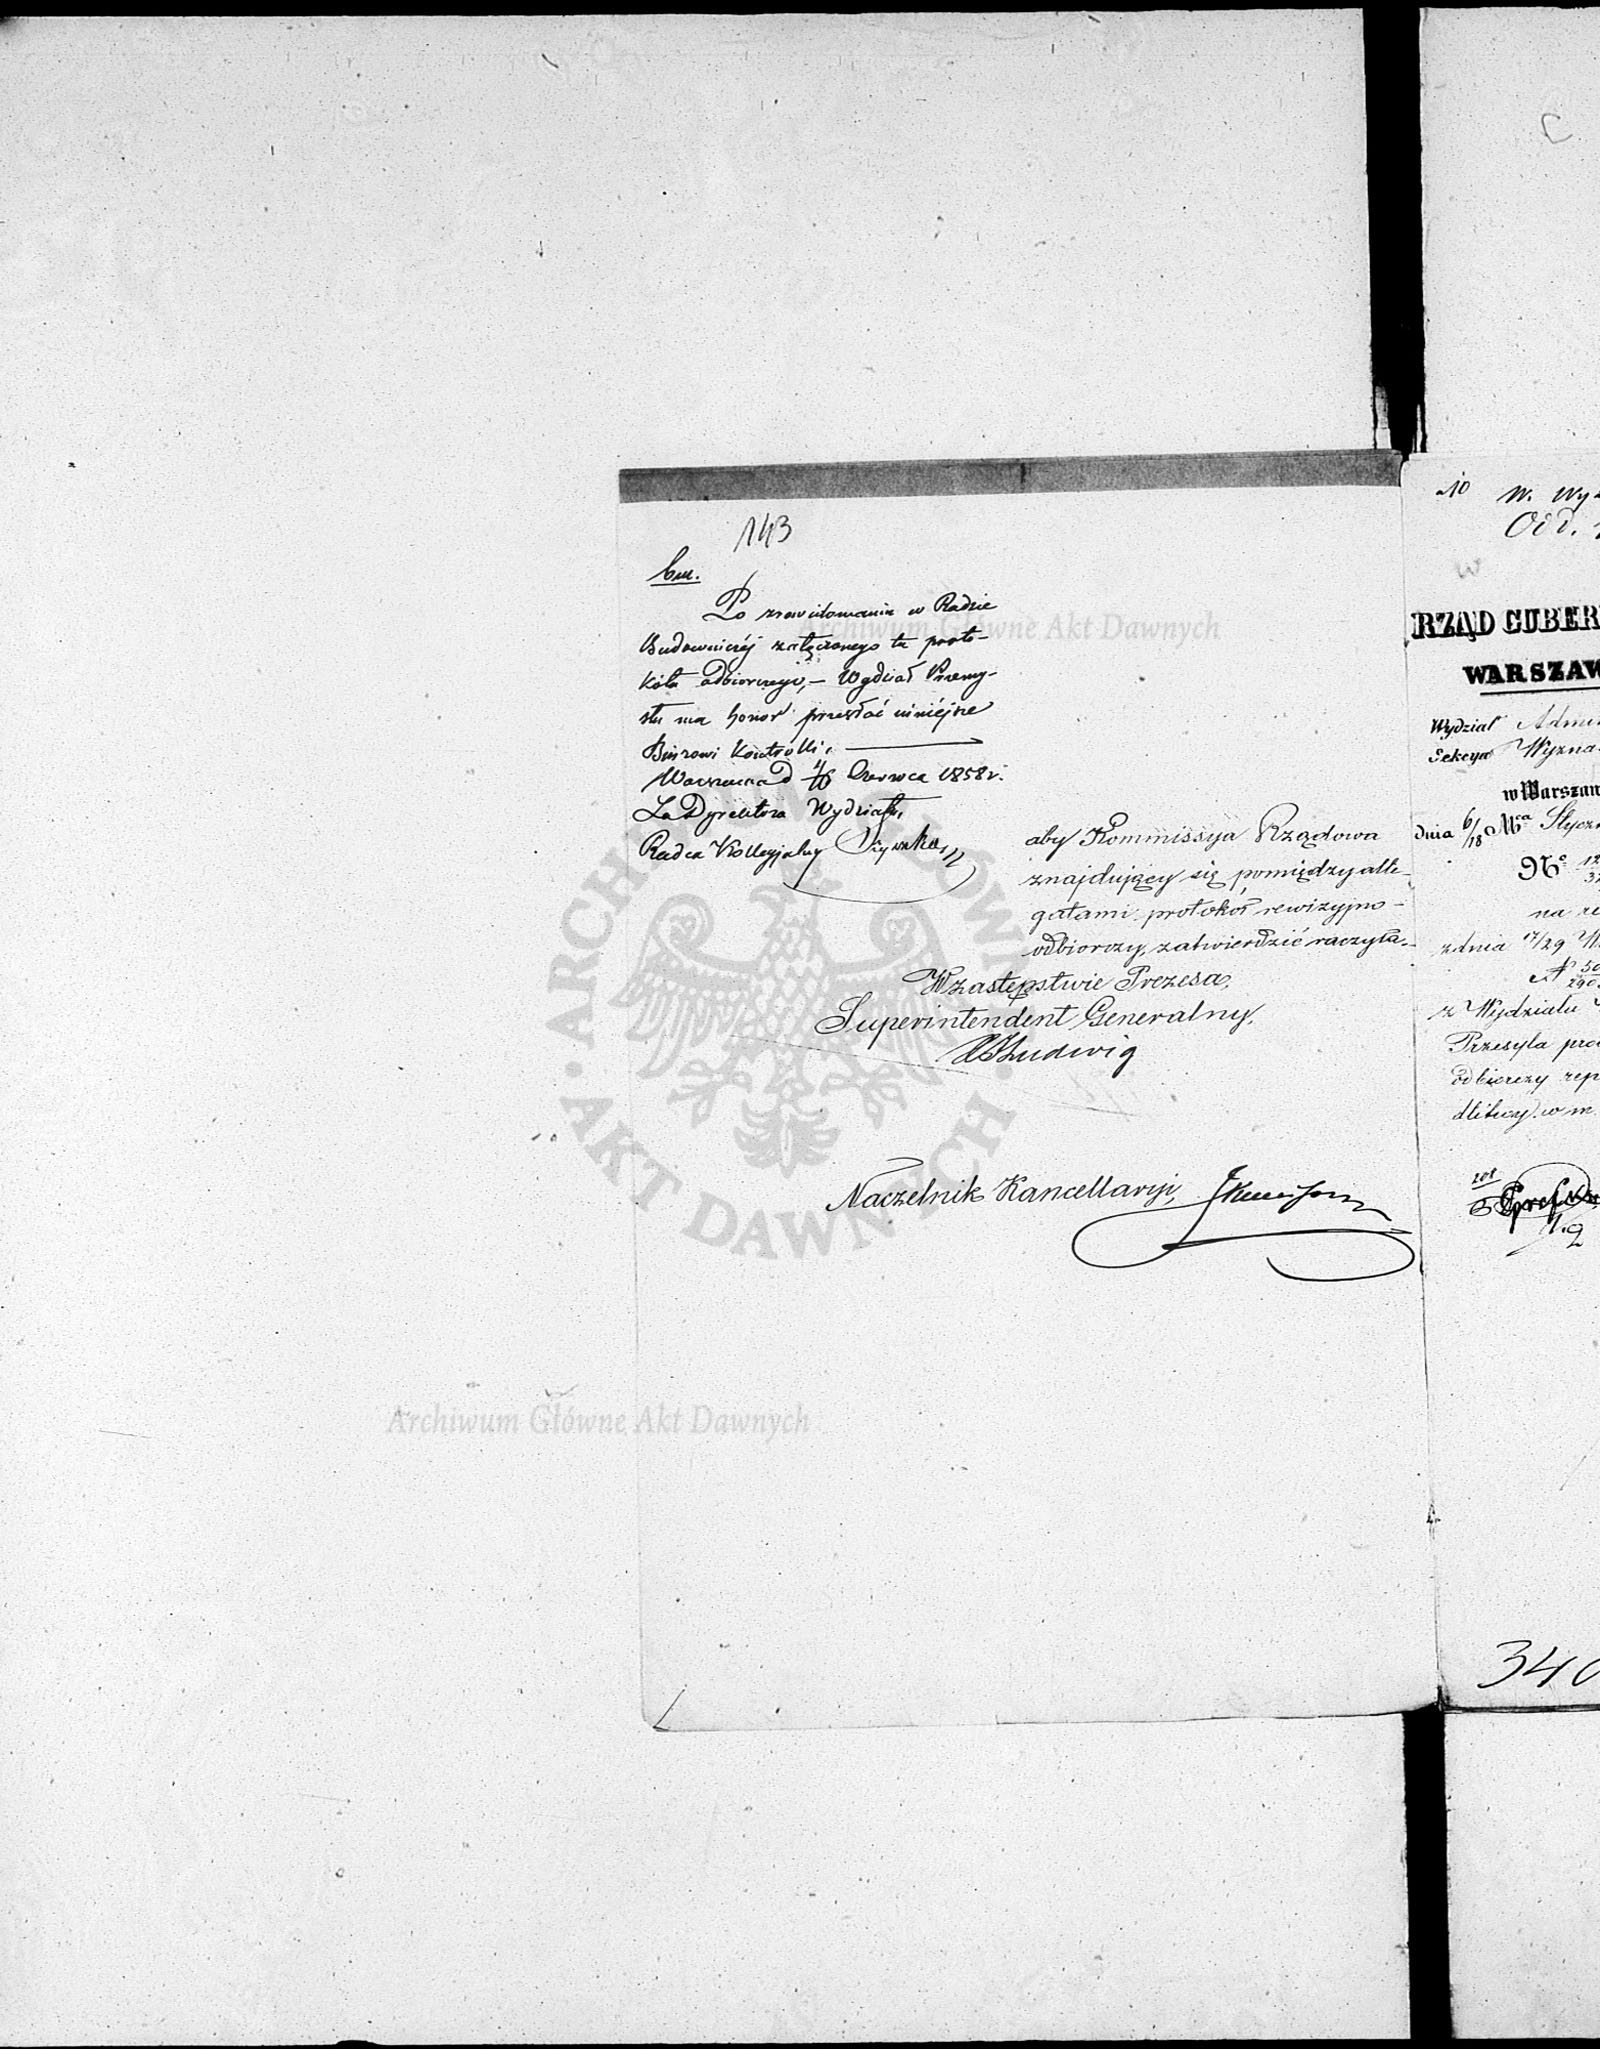 143
bm.
Po zrewidowaniu w Radzie
Budowniczéj załączonego tu proto-
kółu odbiorczego, – Wydział Przemy-
słu ma honor przesłać niniéjsze
Biurowi Kontrolli.
Warszawa d 4/16 Czerwca 1858 r.
Za Dyrektora Wydziału,
Radca Kollegjalny
aby Kommissyja Rządowa
znajdujący się pomiędzy alle-
gatami protokoł rewizyjno-
odbiorczy, zatwierdzić raczyła.
W zastępstwie Prezesa,
Superintendent Generalny,
Ludwig
Naczelnik Kancellaryi,
Archiwum Główne Akt Dawnych
Archiwum Główne Akt Dawnych
ARCHIWUM GŁÓWNE · AKT DAWNYCH ·
W. Wyz
Od.
RZĄD GUBER
WARSZAW
Wydział Admi
Sekcya Wyzna
w Warszaw
dnia 6/18 Mca Stycz
No 12
na re
z dnia 17/29
N 50
290
z Wydziału
Przesyła pro
odbiorczy rep
dlitwy w m.
340